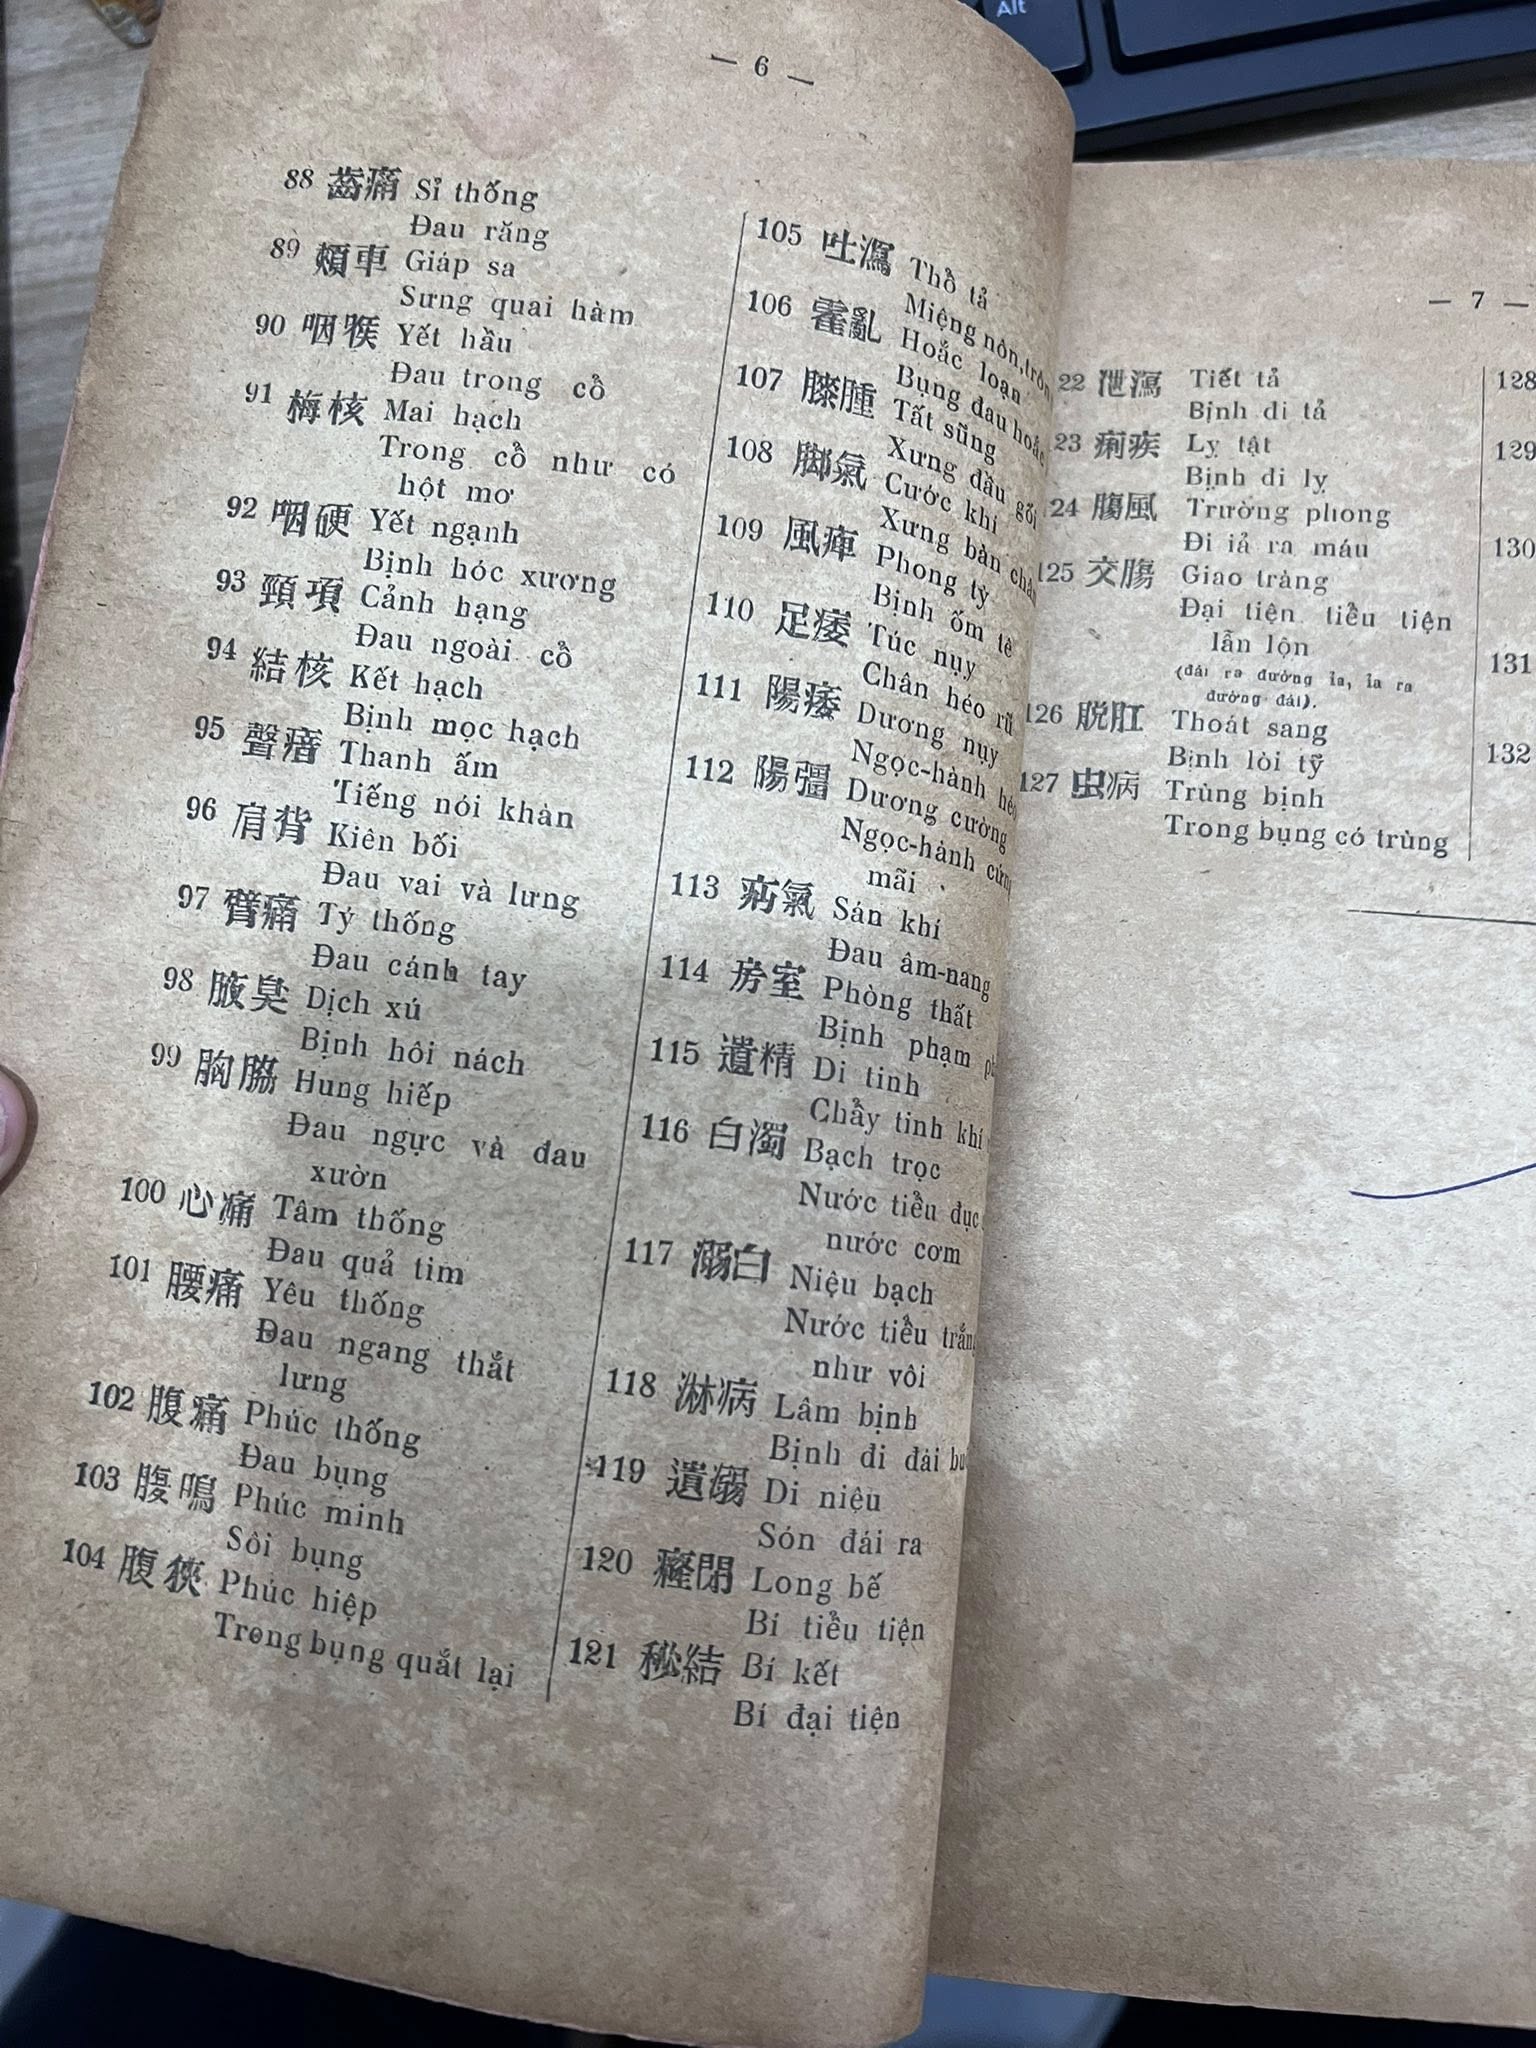 Alt
— 6 —
88 齒痛 Sỉ thống
Đau răng
89 頰車 Giáp sa
Sưng quai hàm
90 咽喉 Yết hầu
Đau trong cổ
91 梅核 Mai hạch
Trong cổ như có
hột mơ
92 咽硬 Yết ngạnh
Bịnh hóc xương
93 頸項 Cảnh hạng
Đau ngoài cổ
94 結核 Kết hạch
Bịnh mọc hạch
95 聲瘖 Thanh ấm
Tiếng nói khàn
96 肩背 Kiên bối
Đau vai và lưng
97 臂痛 Tý thống
Đau cánh tay
98 腋臭 Dịch xú
Bịnh hôi nách
99 胸脇 Hung hiếp
Đau ngực và đau
xườn
100 心痛 Tâm thống
Đau quả tim
101 腰痛 Yêu thống
Đau ngang thắt
lưng
102 腹痛 Phúc thống
Đau bụng
103 腹鳴 Phúc minh
Sôi bụng
104 腹狹 Phúc hiệp
Trong bụng quắt lại
105 吐瀉 Thổ tả
Miệng nôn,
106 霍亂 Hoắc loạn
Bụng đau hoắc
107 膝腫 Tất sũng
Xưng đầu gối
108 脚氣 Cước khí
Xưng bàn chân
109 風痺 Phong tý
Bịnh ốm tê
110 足痿 Túc nụy
Chân héo rũ
111 陽痿 Dương nụy
Ngọc-hành héo
112 陽彊 Dương cường
Ngọc-hành cứng
mãi
113 疝氣 Sán khí
Đau âm-nang
114 房室 Phòng thất
Bịnh phạm
115 遺精 Di tinh
Chẩy tinh khí
116 白濁 Bạch trọc
Nước tiểu đục
nước cơm
117 溺白 Niệu bạch
Nước tiểu trắng
như vôi
118 淋病 Lâm bịnh
Bịnh đi đái
119 遺溺 Di niệu
Són đái ra
120 癃閉 Long bế
Bí tiểu tiện
121 秘結 Bí kết
Bí đại tiện
— 7 —
22 泄瀉 Tiết tả
Bịnh đi tả
23 痢疾 Lỵ tật
Bịnh đi lỵ
124 膓風 Trường phong
Đi iả ra máu
125 交膓 Giao tràng
Đại tiện tiểu tiện
lẫn lộn
(đái ra đường ỉa, ỉa ra
đường đái).
126 脱肛 Thoát sang
Bịnh lòi tỹ
127 虫病 Trùng bịnh
Trong bụng có trùng
128
129
130
131
132